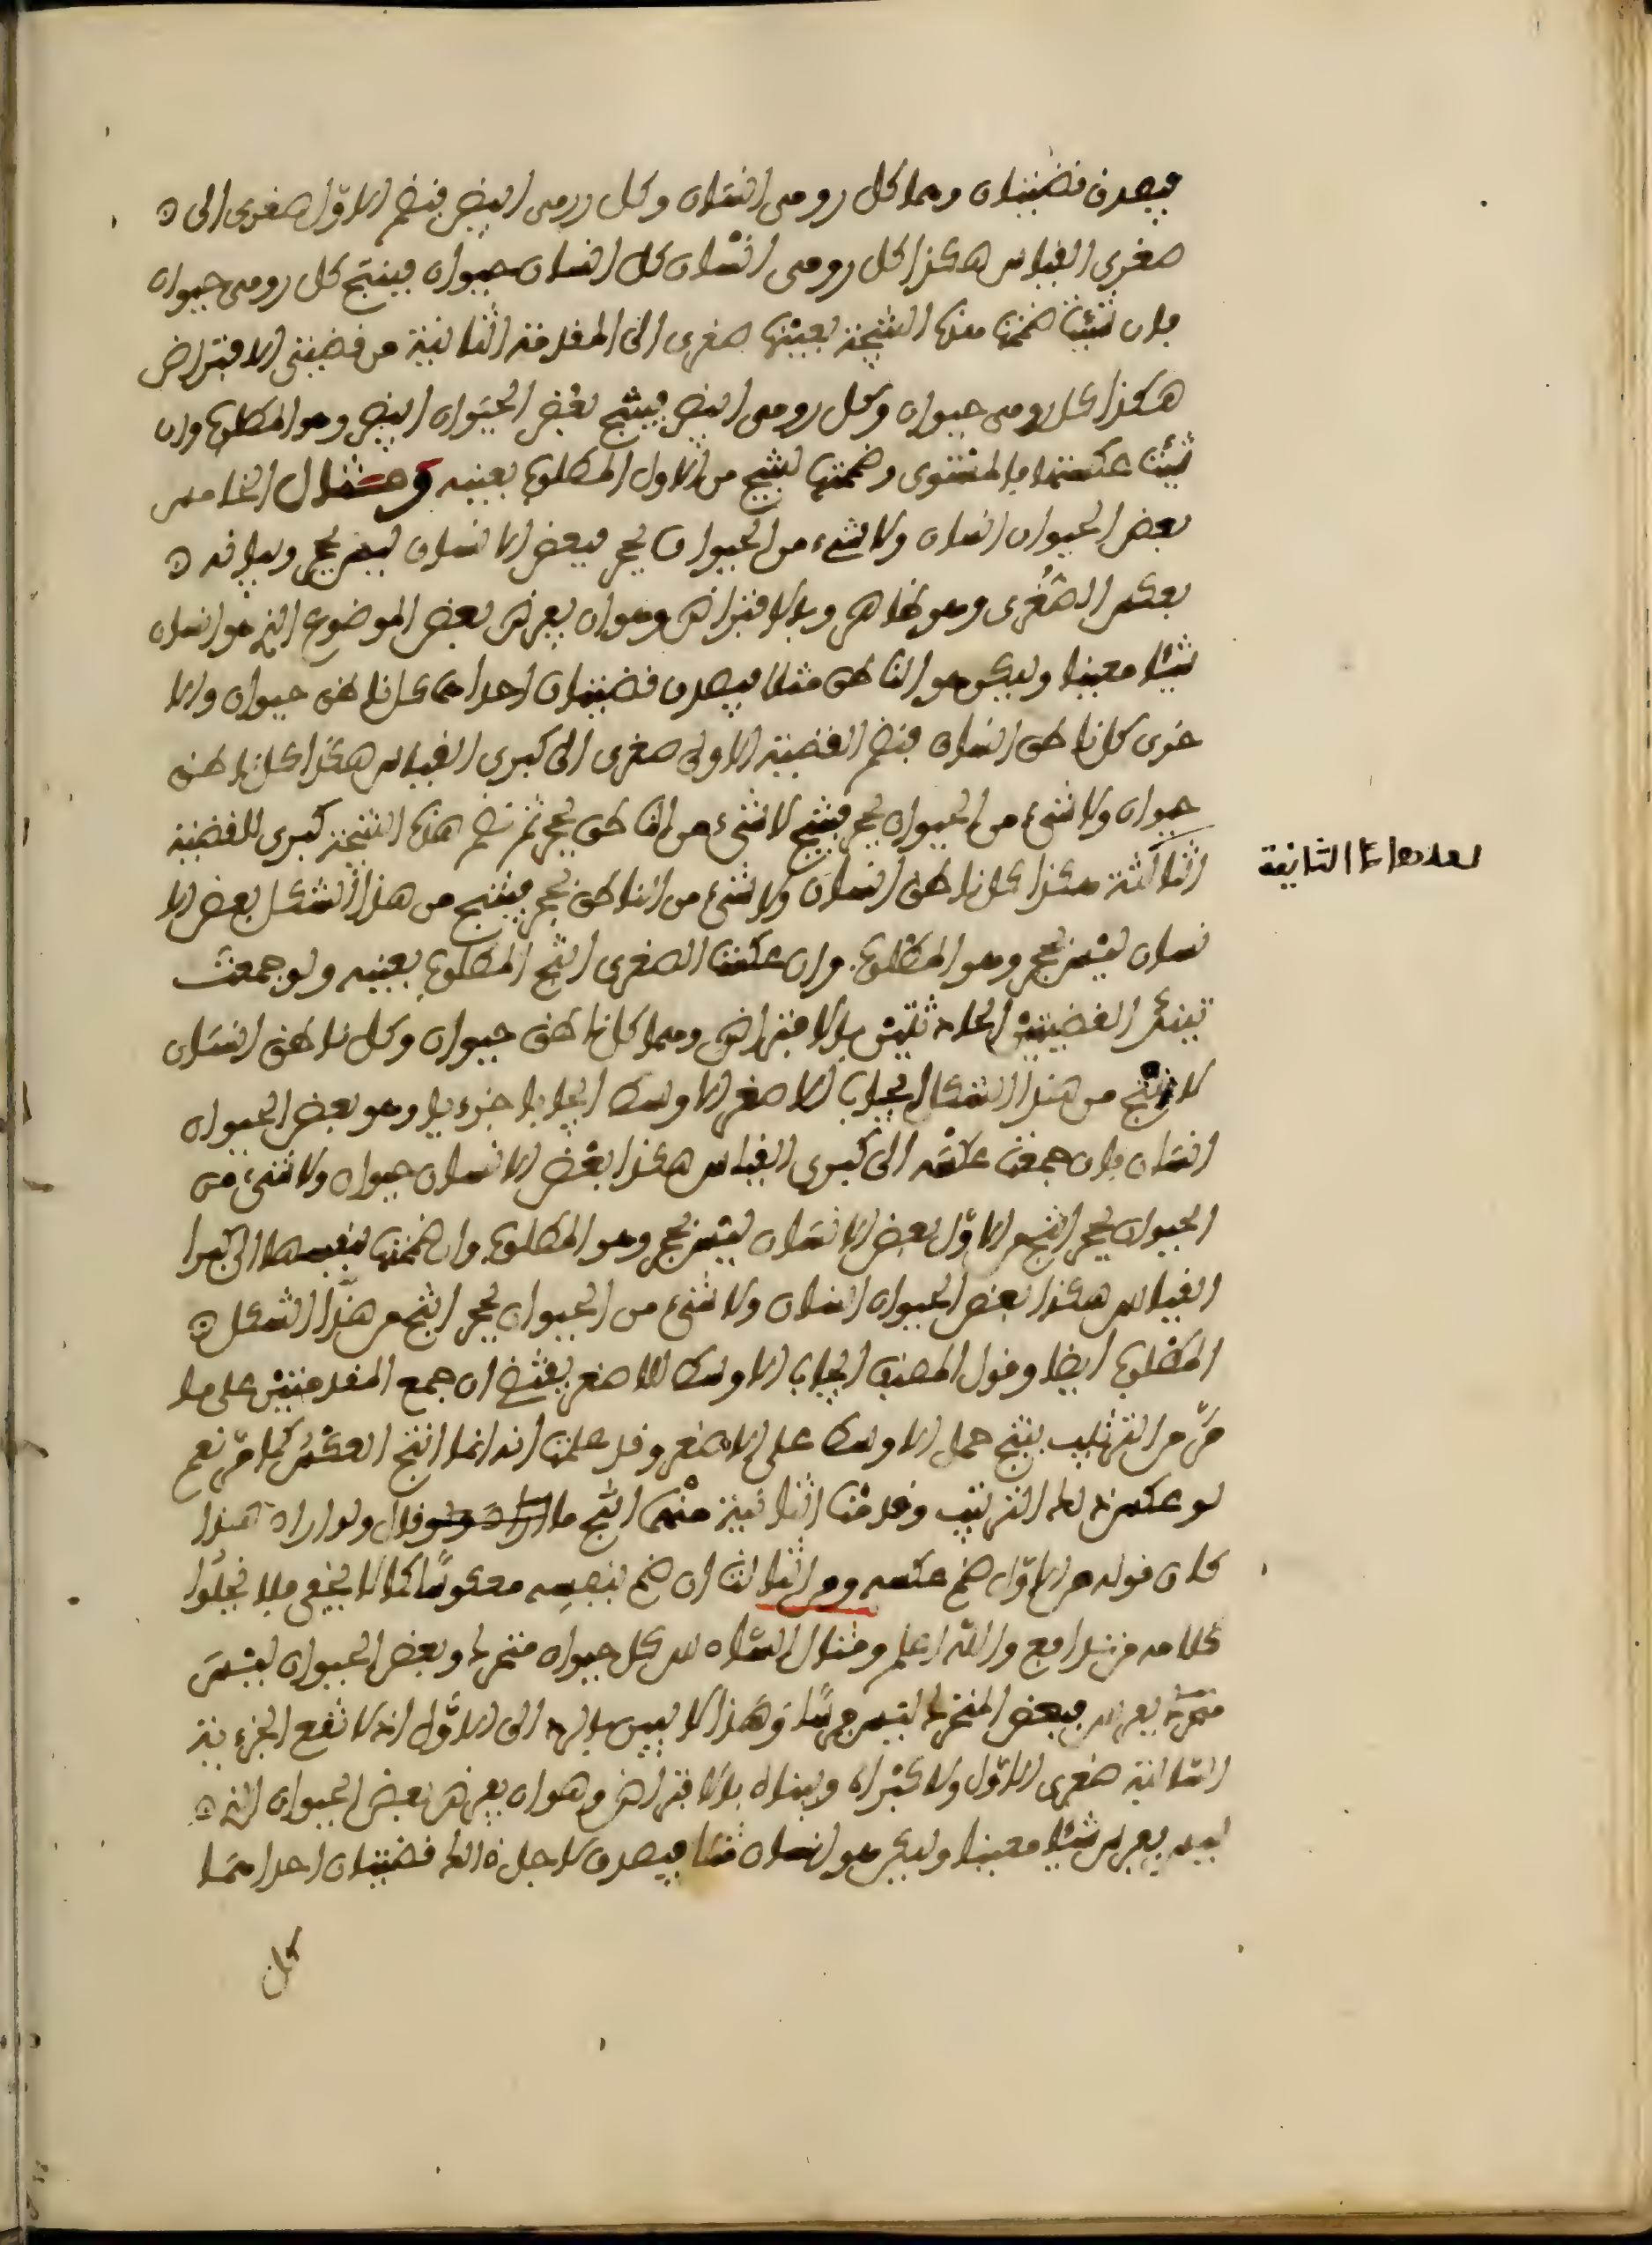 فيصدق قضيتان وهما كل رومي انسان وكل رومي ابيض فنضم الاوّل صغرى الى
صغرى القياس هكذا كل رومي انسان كل انسان حيوان فينتج كل رومي حيوان
فان شئت ضممت هذه النتيجة بعينها صغرى الى المقدمة الثانية من قضيتي الافتراض
هكذا كل رومي حيوان وكل رومي ابيض فينتج بعض الحيوان ابيض وهو المطلوب وان
شئت عكستها بالمستوى وضممتها لينتج من الاول المطلوب بعينه ومثال الخامس
بعض الحيوان انسان ولا شيء من الحيوان بحجر فبعض الانسان ليس بحجر وبيانه
بعكس الصغرى وهو ظاهر وبالافتراض وهو ان يفرض بعض الموضوع الذي هو انسان
شيئا معينا وليكن هو الناطق مثلا فيصدق قضيتان احداهما كل ناطق حيوان والا
خرى كل ناطق انسان فنضم القضية الاولى صغرى الى كبرى القياس هكذا كل ناطق
حيوان ولا شيء من الحيوان بحجر فينتج لا شيء من الناطق بحجر ثم نضم هذه النتيجة كبرى للقضية
الثالثة هكذا كل ناطق انسان ولا شيء من الناطق بحجر فينتج من هذا الشكل بعض الا
نسان ليس بحجر وهو المطلوب وان عكست الصغرى انتج المطلوب بعينه ولو جمعت
القضيتين الحادثتين بالافتراض وهما كل ناطق حيوان وكل ناطق انسان
لانتج من هذا الشكل ايجاب الاصغر الاوسط ايجابا جزءيا وهو بعض الحيوان
انسان فان جمعت عكسه الى كبرى القياس هكذا بعض الانسان حيوان ولا شيء من
الحيوان بحجر انتج من الاوّل بعض الانسان ليس بحجر وهو المطلوب وان ضممتها بنفسها الى كبرا
القياس هكذا بعض الحيوان انسان ولا شيء من الحيوان بحجر انتج من هذا الشكل
المطلوب ايضا وقول المصنف ايجاب الاوسط للاصغر يقتضي ان جمع المقدمتين على ما
مرّ من الترتيب ينتج حمل الاوسط على الاصغر وقد علمت انه انما انتج العكس كما مرّ نعم
لو عكس ذلك الترتيب وقدمت الثانية منهما انتج ما وقال ولو اراد هذا
كان قوله من الاوّل ضم عكسه ومن الثالث ان ضم بنفسه معكوسًا كما لا يخفى فلا يخلوا
كلامه من تدافع والله اعلم ومثال السادس كل حيوان متحرك وبعض الحيوان ليس
بفرس فبعض المتحرك ليس فرسًا وهذا لا يبين بالرد الى الاوّل اذ لا تقع الجزءية
السالبة صغرى الاوّل ولا كبراه وبيانه بالافتراض وهو ان يفرض بعض الحيوان الذي
ليس بفرس شيئا معينا وليكن هو انسان مثلا فيصدق لاجل ذلك قضيتان احداهما
كل